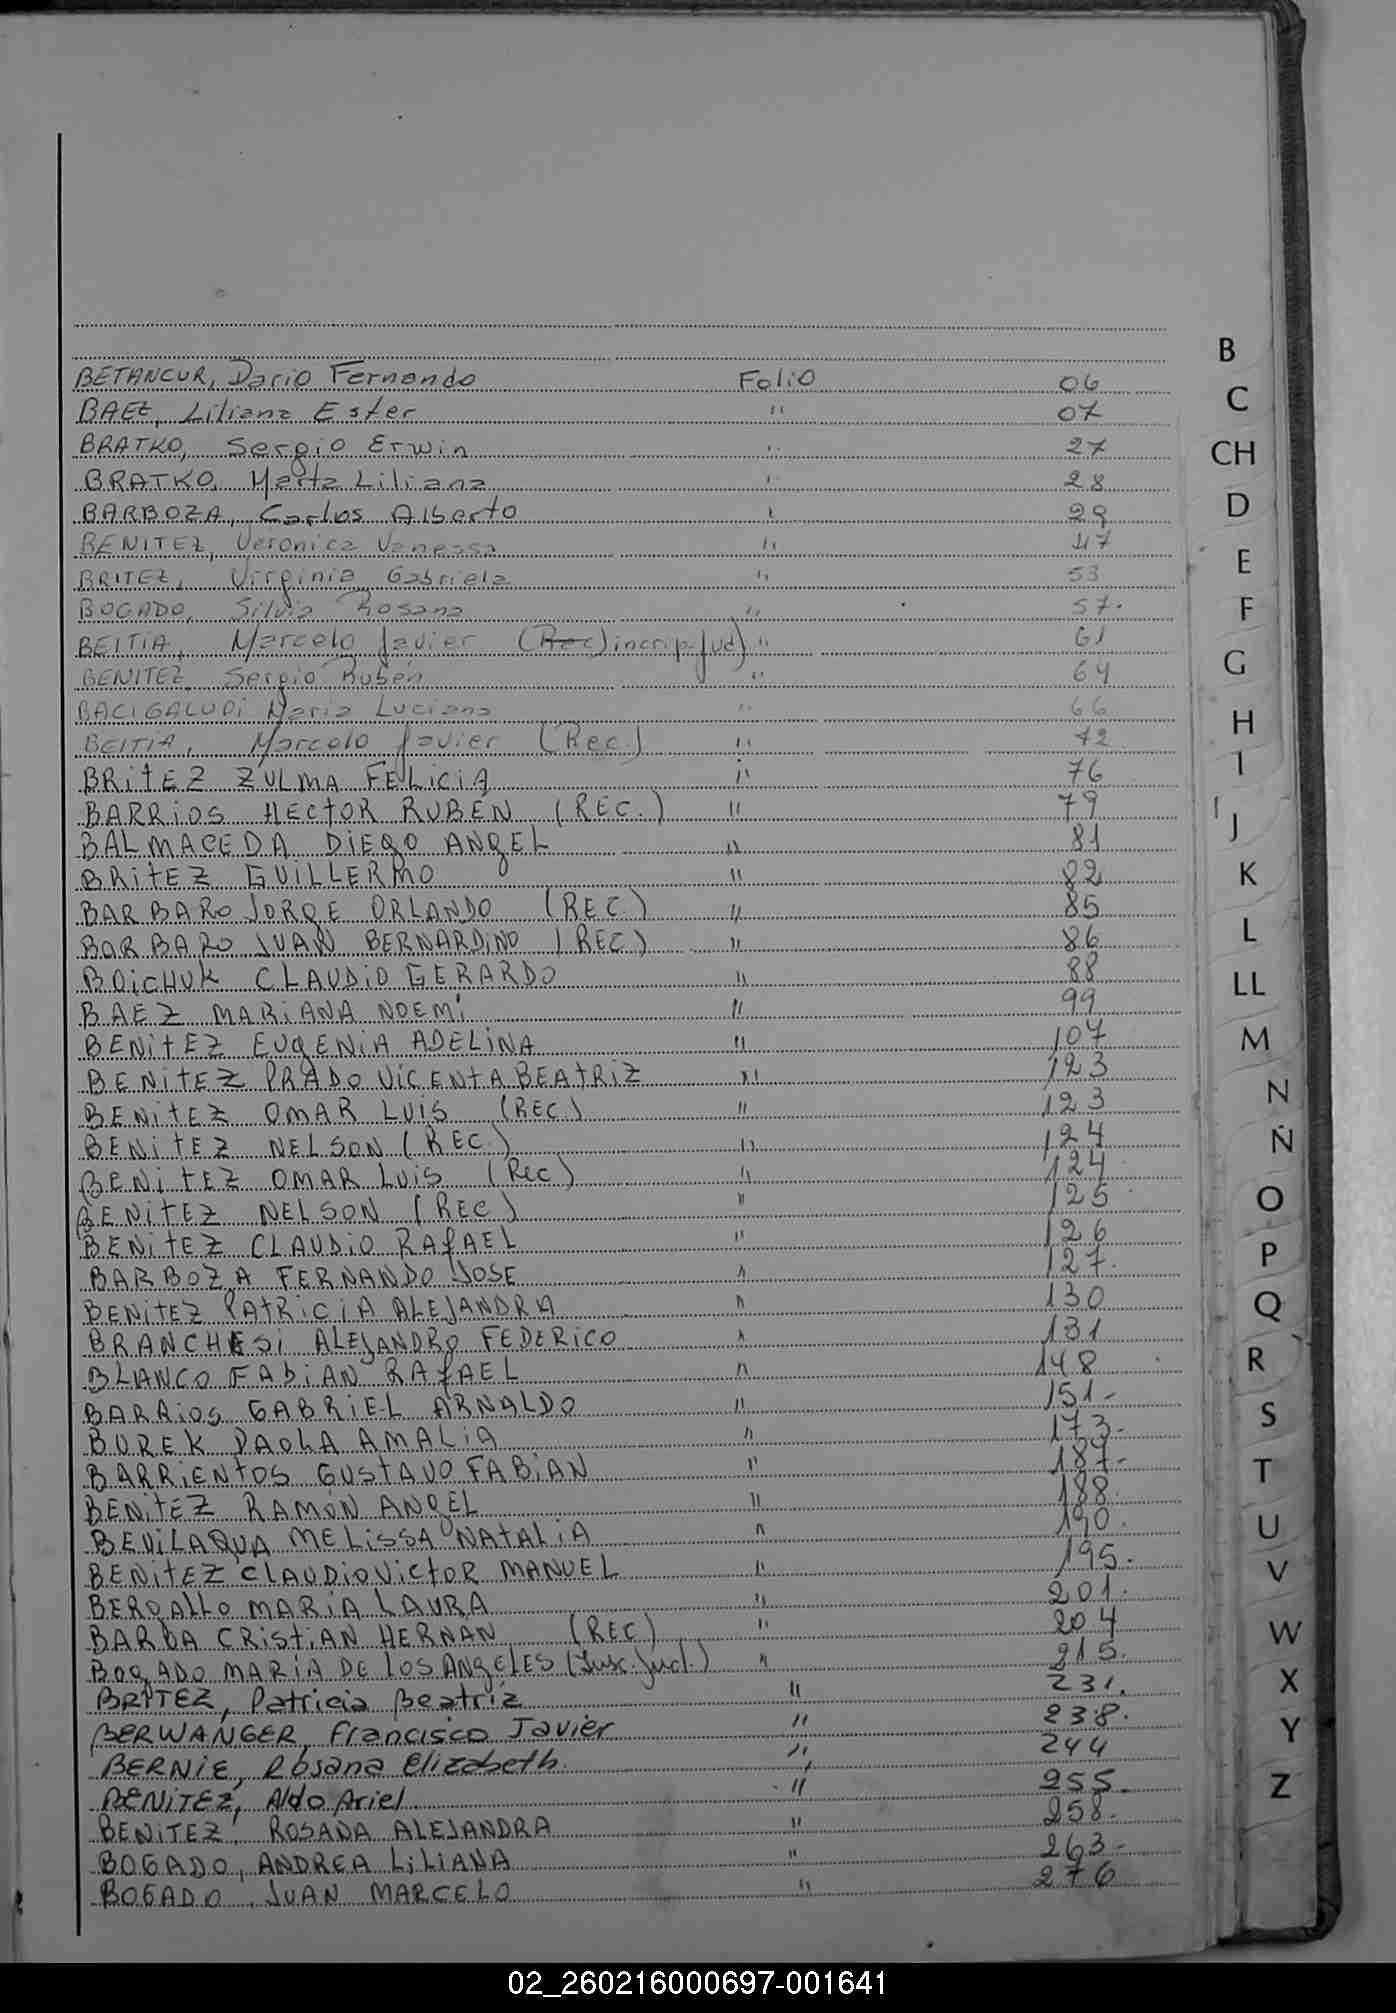 BETANCUR, Dario Fernando Folio 06
BAEZ, Liliana Ester " 07
BRATKO, Sergio Erwin " 27
BRATKO, Marta Liliana " 28
BARBOZA, Carlos Alberto " 29
BENITEZ, Veronica Vanessa " 47
BRITEZ, Virginia Gabriela " 53
BOGADO, Silvia Rosana " 57.
BEITIA, Marcelo Javier (Rec) incrip. Jud) " 61
BENITEZ Sergio Rubén " 64
BACIGALUPI Maria Luciana " 66
BEITIA, Marcelo Javier (Rec.) " 72
BRITEZ ZULMA FELICIA " 76
BARRIOS HECTOR RUBEN (REC.) " 79
BALMACEDA DIEGO ANGEL " 81
BRITEZ GUILLERMO " 82
BARBARO JORGE ORLANDO (REC) " 85
BARBARO JUAN BERNARDINO (REC) " 86
BOICHUK CLAUDIO GERARDO " 88
BAEZ MARIANA NOEMI " 99
BENITEZ EUGENIA ADELINA " 107
BENITEZ PRADO VICENTA BEATRIZ " 123
BENITEZ OMAR LUIS (REC.) " 123
BENITEZ NELSON (REC.) " 124
BENITEZ OMAR LUIS (Rec) " 124
BENITEZ NELSON (REC) " 125
BENITEZ CLAUDIO RAFAEL " 126
BARBOZA FERNANDO JOSE " 127.
BENITEZ PATRICIA ALEJANDRA " 130
BRANCHESI ALEJANDRO FEDERICO " 131
BLANCO FABIAN RAFAEL " 148
BARRIOS GABRIEL ARNALDO " 151-
BUREK PAOLA AMALIA " 173-
BARRIENTOS GUSTAVO FABIAN " 187-
BENITEZ RAMÓN ANGEL " 188.
BEVILAQUA MELISSA NATALIA " 190.
BENITEZ CLAUDIO VICTOR MANUEL " 195.
BERGALLO MARIA LAURA " 201.
BARBA CRISTIAN HERNAN (REC) " 204
BOGADO MARIA DE LOS ANGELES (Insc. Jud.) " 215.
BRITEZ, Patricia Beatriz " 231.
BERWANGER, Francisco Javier " 238.
BERNIE, Rosana Elizabeth. " 244
BENITEZ, Aldo Ariel. " 255.
BENITEZ, ROSANA ALEJANDRA " 258.
BOGADO, ANDREA LILIANA " 263-
BOGADO, JUAN MARCELO " 276
B
C
CH
D
E
F
G
H
I
J
K
L
LL
M
N
Ñ
O
P
Q
R
S
T
U
V
W
X
Y
Z
02_260216000697-001641